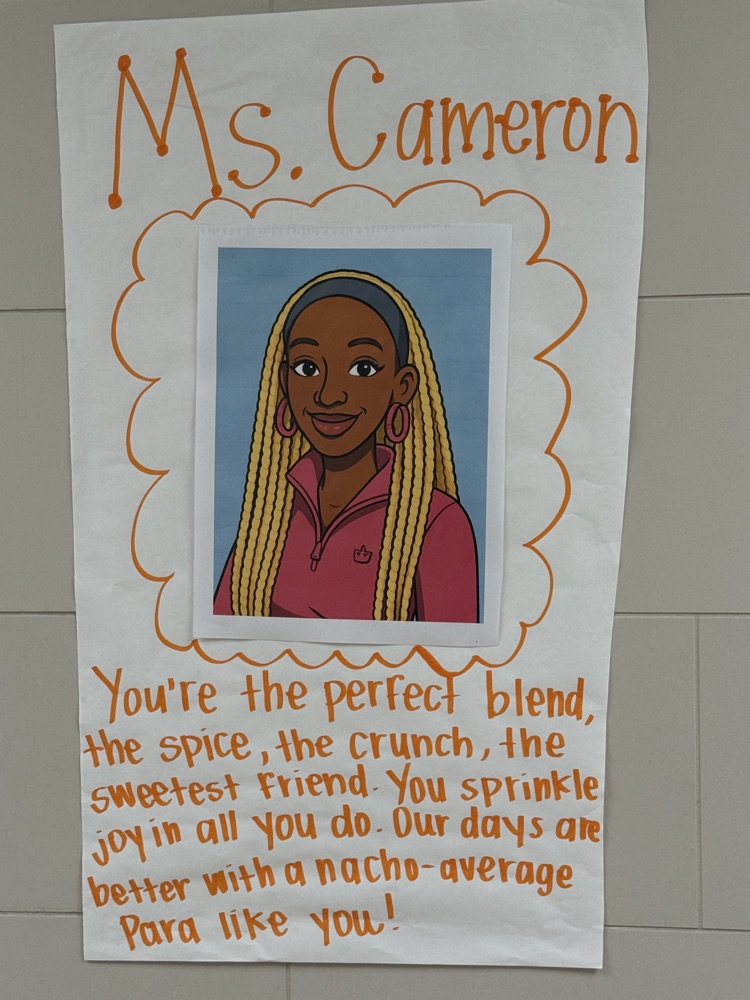 Ms. Cameron
You're the perfect blend,
the spice, the crunch, the
sweetest friend. You sprinkle
joy in all you do. Our days are
better with a nacho-average
Para like you!